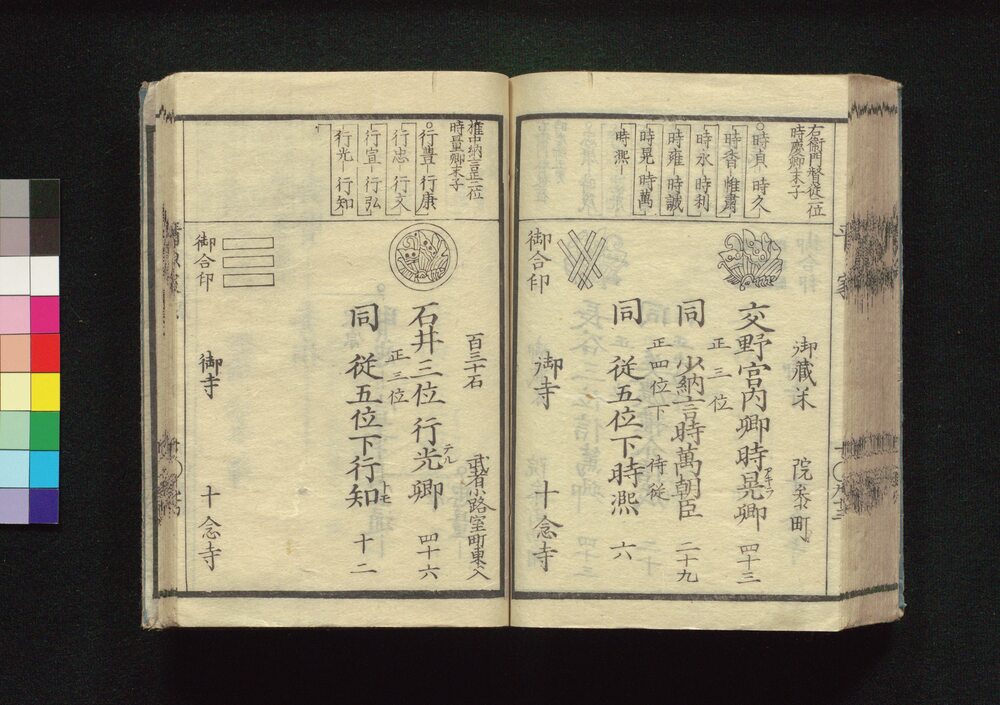 右衛門督従二位
時慶卿末子
時貞 時久
時香 惟肅
時永 時利
時雍 時誠
時晃 時萬
時凞
御蔵米 院参町
交野宮内卿時晃卿 四十三
正三位
同 少納言時萬朝臣 二十九
正四位下 侍従
同 従五位下時凞 六
御合印
御寺 十念寺
権中納言正二位
時量卿末子
行豊 行康
行忠 行文
行宣 行弘
行光 行知
百三十石 武者小路室町東入
石井三位行光卿 四十六
テル
正三位
同 従五位下行知 十二
トモ
御合印
御寺 十念寺